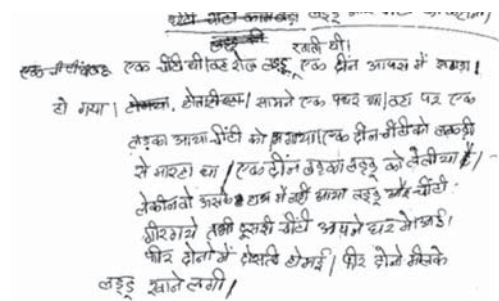 चींटी काम बड़ा लड्डू
लड्डू की खाती थी।
एक चींटी थी। वह रोज लड्डू एक दीन आपस में झगडा
हो गया। सामने एक पथर था। वहा पर एक
लडका आया चींटी को भगाया। एक दीन चींटी को लकडी
से मारता था। एक दीन लडका लड्डू को लेलीया है।
लेकीन वो उसके हाथ में नही आया लड्डू और चींटी
गीरगये तभी दूसरी चींटी अपने घर मे आई।
फीर दोनो में दोसती होगई। फीर दोनो मीलके
लड्डू खाने लगी।